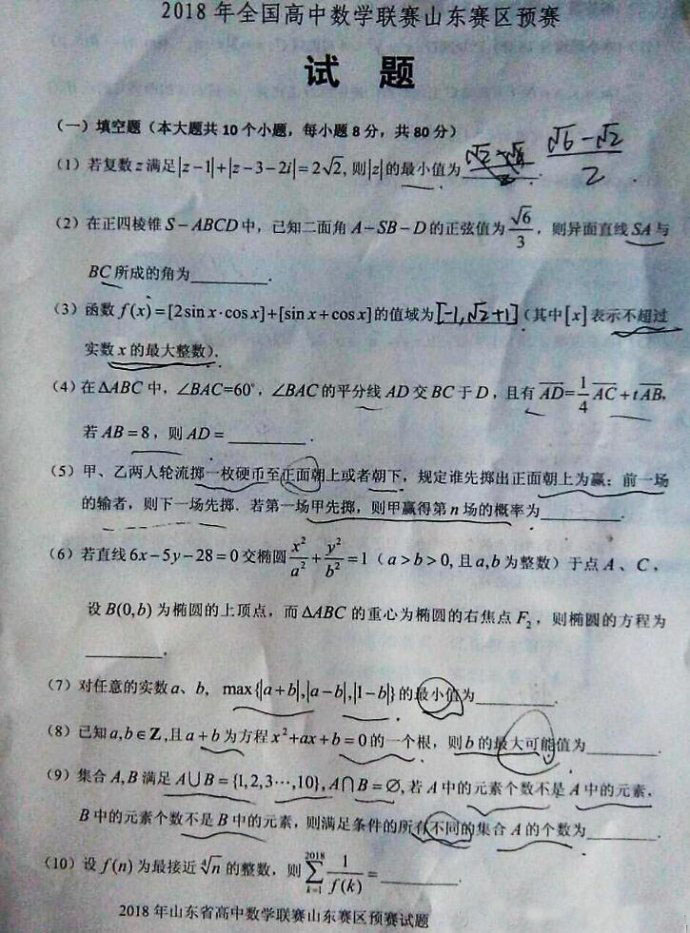 2018年全国高中数学联赛山东赛区预赛
试 题
(一) 填空题（本大题共10个小题，每小题8分，共80分）
(1) 若复数z满足|z−1|+|z−3−2i|=2√2, 则|z|的最小值为 (√6−√2)/2 .
(2) 在正四棱锥S−ABCD中，已知二面角A−SB−D的正弦值为√6/3，则异面直线SA与
BC所成的角为________.
(3) 函数f(x)=[2sin x·cos x]+[sin x+cos x]的值域为[-1,√2+1]（其中[x]表示不超过
实数x的最大整数）.
(4) 在ΔABC中，∠BAC=60°，∠BAC的平分线AD交BC于D，且有AD=1/4 AC+tAB,
若AB=8，则AD=________.
(5) 甲、乙两人轮流掷一枚硬币至正面朝上或者朝下，规定谁先掷出正面朝上为赢；前一场
的输者，则下一场先掷．若第一场甲先掷，则甲赢得第n场的概率为________.
(6) 若直线6x−5y−28=0交椭圆x²/a²+y²/b²=1（a>b>0, 且a,b为整数）于点A、C，
设B(0,b)为椭圆的上顶点，而ΔABC的重心为椭圆的右焦点F₂，则椭圆的方程为
________.
(7) 对任意的实数a、b, max{|a+b|,|a−b|,|1−b|}的最小值为________.
(8) 已知a,b∈Z,且a+b为方程x²+ax+b=0的一个根，则b的最大可能值为________.
(9) 集合A,B满足A∪B={1,2,3⋯,10},A∩B=∅,若A中的元素个数不是A中的元素,
B中的元素个数不是B中的元素，则满足条件的所有不同的集合A的个数为________.
(10) 设f(n)为最接近∜n的整数，则∑_{k=1}^{2018} 1/f(k)=________.
2018年山东省高中数学联赛山东赛区预赛试题